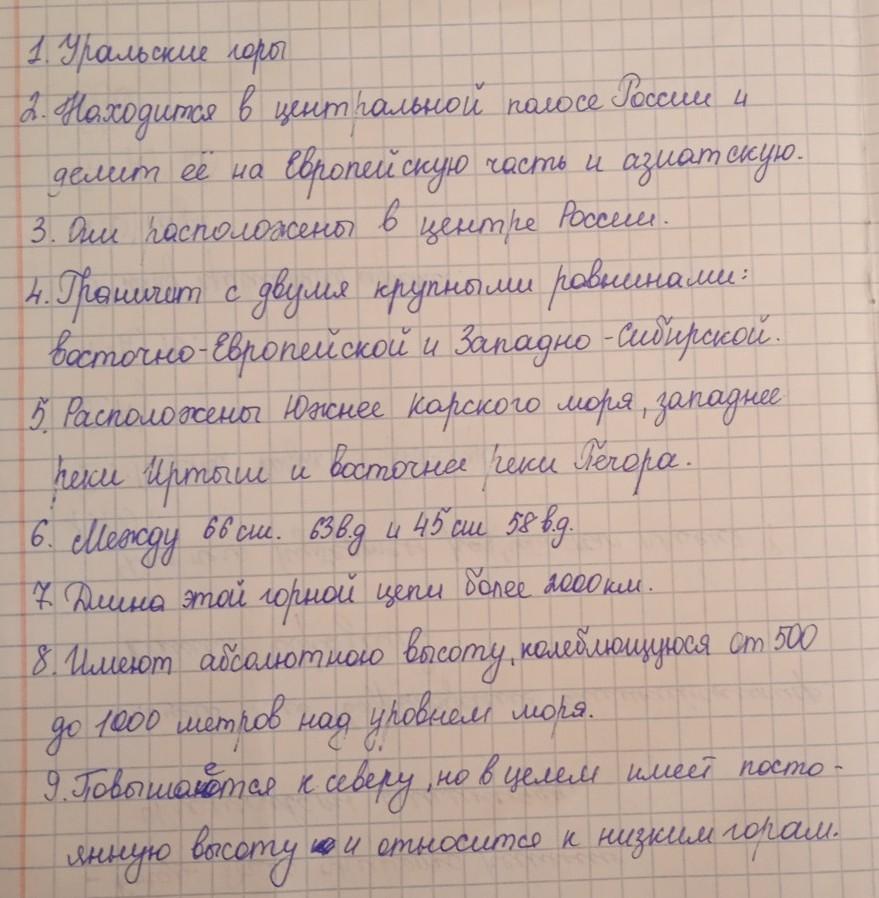 1. Уральские горы
2. Находится в центральной полосе России и
делит её на Европейскую часть и азиатскую.
3. Они расположены в центре России.
4. Граничит с двумя крупными равнинами:
восточно-Европейской и Западно-Сибирской.
5. Расположены Южнее Карского моря, западнее
реки Иртыш и восточнее реки Печора.
6. Между 66 сш. 63 в.д и 45 сш 58 в.д.
7. Длина этой горной цепи более 2000 км.
8. Имеют абсолютную высоту, колеблющуюся от 500
до 1000 метров над уровнем моря.
9. Повышается к северу, но в целем имеет посто-
янную высоту и относится к низким горам.